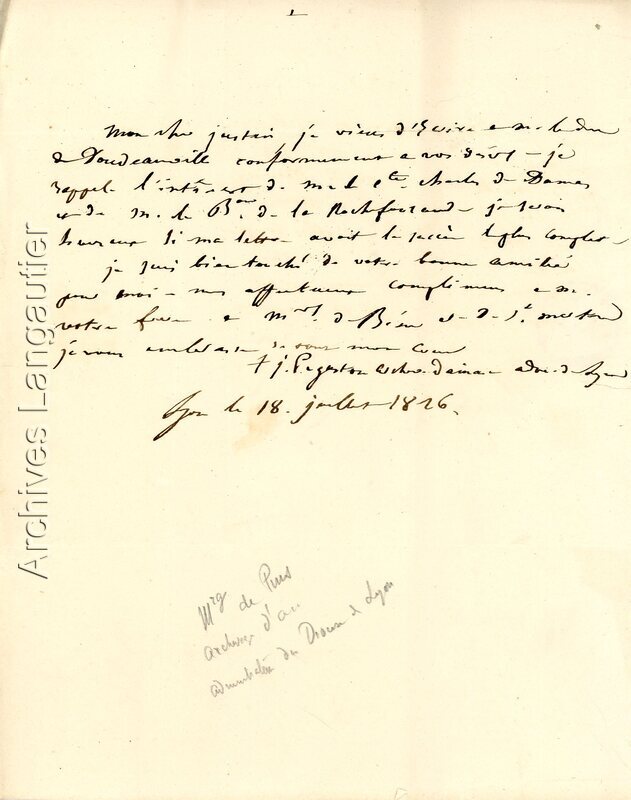 Mon cher justin je viens d'Ecrire a m. le duc
de Doudeauville conformement a vos désirs - je
rappelle l'intérest de m. le cte charles de Damas
et de m. le Bon de la Rochefoucauld je serois
heureux si ma lettre avoit le succès le plus complet
je suis bien touché de votre bonne amitié
pour moi - mes affectueux complimens a m.
votre frere a Mrs de et de St.
je vous embrasse de tout mon coeur
† j. P. gaston archev. d'amasie adm. de Lyon
Lyon le 18. juillet 1826.
Mrg de Pins
archeveq d'am
administ du Diocese de Lyon
Archives Langautier